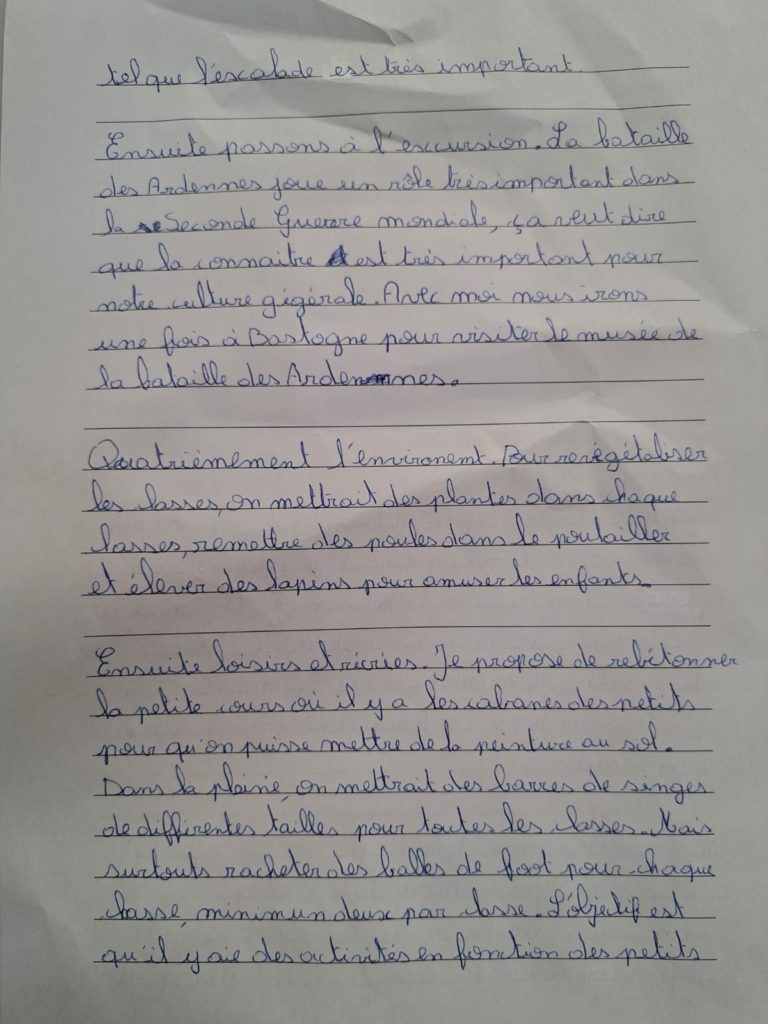 tel que l'éscalade est très important.
Ensuite passons à l'éxcursion. La bataille
des Ardennes joue un rôle très important dans
la Seconde Guerre mondiale, ça veut dire
que la connaitre est très important pour
notre culture gégérale. Avec moi nous irons
une fois à Bastogne pour visiter le musée de
la bataille des Ardennes.
Quatrièmement l'environemt. Pour revégétaliser
les classes, on mettrait des plantes dans chaque
classes, remettre des poules dans le poulailler
et élever des lapins pour amuser les enfants.
Ensuite loisirs et récries. Je propose de rebétonner
la petite cours où il y a les cabanes des petits
pour qu'on puisse mettre de la peinture au sol.
Dans la plaine, on mettrait des barres de singes
de différentes tailles pour toutes les classes. Mais
surtouts racheter des balles de foot pour chaque
classe, minimun deux par classe. L'objectif est
qu'il y aie des activités en fonction des petits